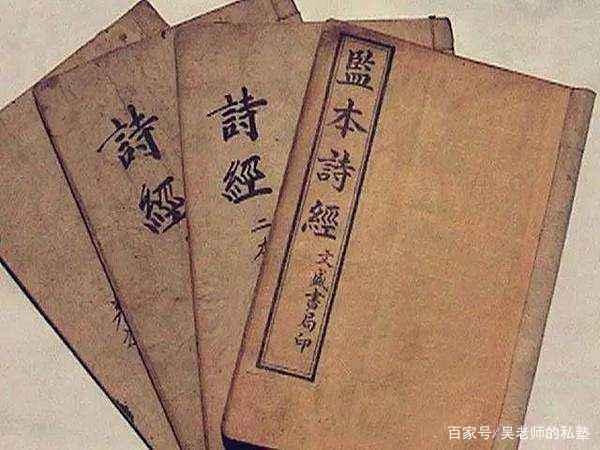 監本詩經
文盛書局印
詩經
二本
詩經
百家号/吴老师的私塾